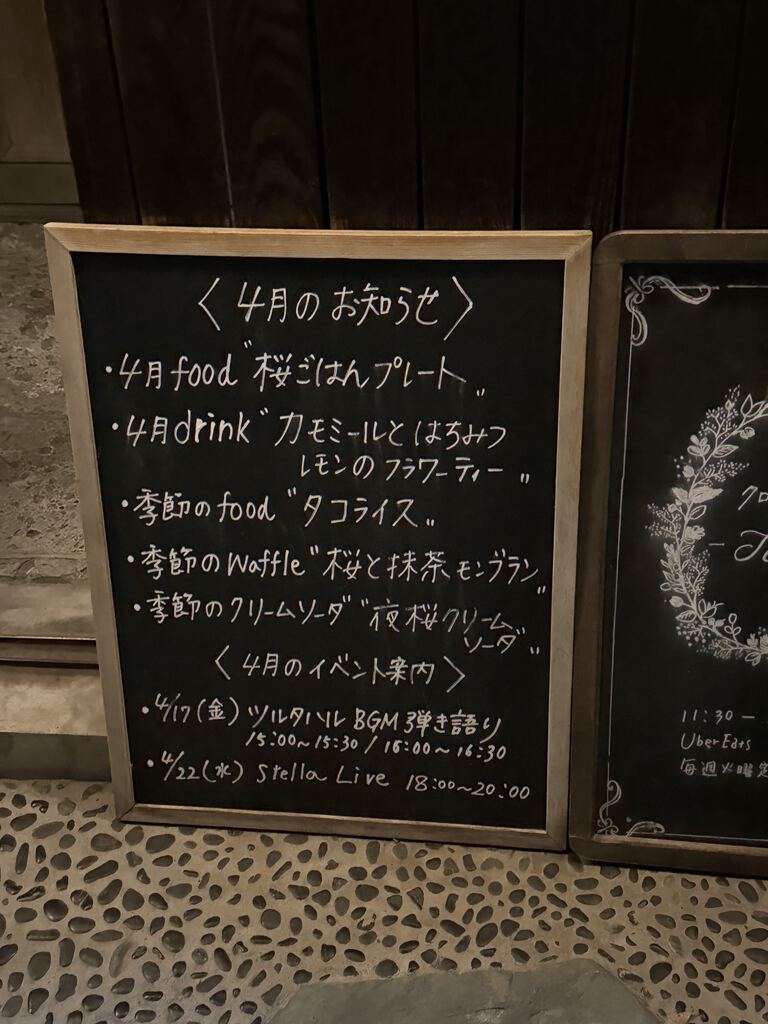 〈 4月の お知らせ 〉
・4月 food "桜ごはんプレート„
・4月 drink "カモミールと はちみつ
レモンの フラワーティー„
・季節の food "タコライス„
・季節の waffle "桜と抹茶モンブラン„
・季節の クリームソーダ "夜桜クリーム
ソーダ„
〈 4月の イベント案内 〉
・4/17(金) ツルタハル BGM 弾き語り
15:00~15:30 / 16:00~16:30
・4/22(水) Stella Live 18:00~20:00
11:30 –
Uber Eats
毎週火曜定